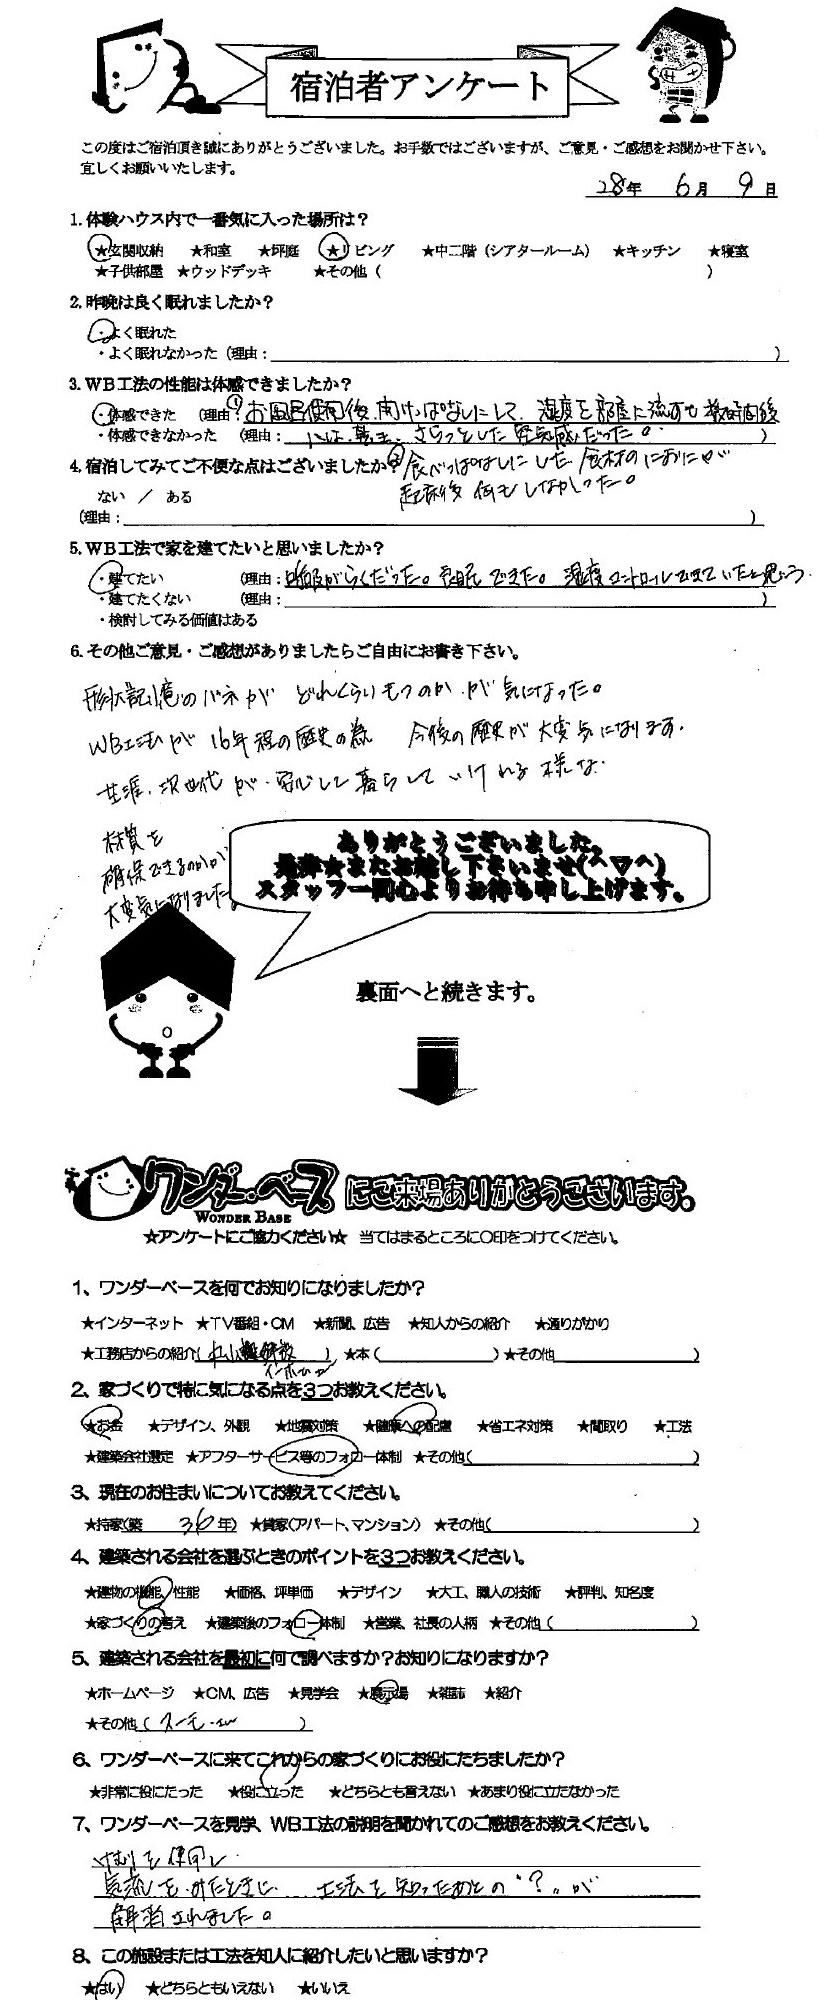 宿泊者アンケート
この度はご宿泊頂き誠にありがとうございました。お手数ではございますが、ご意見・ご感想をお聞かせ下さい。
宜しくお願いいたします。
28年 6月 9日
1.体験ハウス内で一番気に入った場所は？
★玄関収納 ★和室 ★坪庭 ★リビング ★中二階（シアタールーム） ★キッチン ★寝室
★子供部屋 ★ウッドデッキ ★その他（ ）
2.昨晩は良く眠れましたか？
・よく眠れた
・よく眠れなかった（理由： ）
3.WB工法の性能は体感できましたか？
・体感できた （理由：①お風呂使用後、開けっぱなしにして、湿度を部屋に流すも数時間後
・体感できなかった （理由： には、さらっとした空気感だった。 ）
4.宿泊してみてご不便な点はございましたか？ ②食べっぱなしにした食材のにおいが
ない ／ ある 起床後何もしなかった。
（理由： ）
5.WB工法で家を建てたいと思いましたか？
・建てたい （理由：呼吸がらくだった。安眠できた。湿度コントロールできていたと思う
・建てたくない （理由： ）
・検討してみる価値はある
6.その他ご意見・ご感想がありましたらご自由にお書き下さい。
形状記憶のバネがどれくらいもつのかが気になった。
WB工法が16年程の歴史の為 今後の歴史が大変気になります。
生涯、次世代が、安心して暮らしていける様な
材質を
確保できるのかが
大変気になりました。
ありがとうございました。
是非★またお越し下さいませ(^▽^)
スタッフ一同心よりお待ち申し上げます。
裏面へと続きます。
ワンダーベースにご来場ありがとうございます。
WONDER BASE
★アンケートにご協力ください★ 当てはまるところに○印をつけてください。
1、ワンダーベースを何でお知りになりましたか？
★インターネット ★TV番組・CM ★新聞、広告 ★知人からの紹介 ★通りがかり
★工務店からの紹介（ ） ★本（ ） ★その他
2、家づくりで特に気になる点を3つお教えください。
★お金 ★デザイン、外観 ★地震対策 ★健康への配慮 ★省エネ対策 ★間取り ★工法
★建築会社選定 ★アフターサービス等のフォロー体制 ★その他（ ）
3、現在のお住まいについてお教えてください。
★持家（築 36年） ★貸家（アパート、マンション） ★その他（ ）
4、建築される会社を選ぶときのポイントを3つお教えください。
★建物の機能、性能 ★価格、坪単価 ★デザイン ★大工、職人の技術 ★評判、知名度
★家づくりの考え ★建築後のフォロー体制 ★営業、社長の人柄 ★その他（ ）
5、建築される会社を最初に何で調べますか？お知りになりますか？
★ホームページ ★CM、広告 ★見学会 ★展示場 ★雑誌 ★紹介
★その他（ スーモ ）
6、ワンダーベースに来てこれからの家づくりにお役にたちましたか？
★非常に役にたった ★役に立った ★どちらとも言えない ★あまり役に立たなかった
7、ワンダーベースを見学、WB工法の説明を聞かれてのご感想をお教えください。
けむりを使用し
気流をみたときに 工法を知ったあとの"？"が
解消されました。
8、この施設または工法を知人に紹介したいと思いますか？
★はい ★どちらともいえない ★いいえ